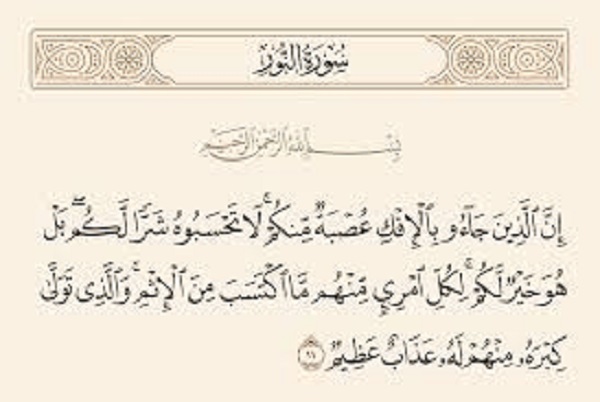 سُورَةُ النُّورِ
بِسْمِ ٱللَّهِ ٱلرَّحْمَٰنِ ٱلرَّحِيمِ
إِنَّ ٱلَّذِينَ جَآءُو بِٱلْإِفْكِ عُصْبَةٌ مِّنكُمْ ۚ لَا تَحْسَبُوهُ شَرًّا لَّكُم ۖ بَلْ
هُوَ خَيْرٌ لَّكُمْ ۚ لِكُلِّ ٱمْرِئٍ مِّنْهُم مَّا ٱكْتَسَبَ مِنَ ٱلْإِثْمِ ۚ وَٱلَّذِى تَوَلَّىٰ
كِبْرَهُۥ مِنْهُمْ لَهُۥ عَذَابٌ عَظِيمٌ ١١